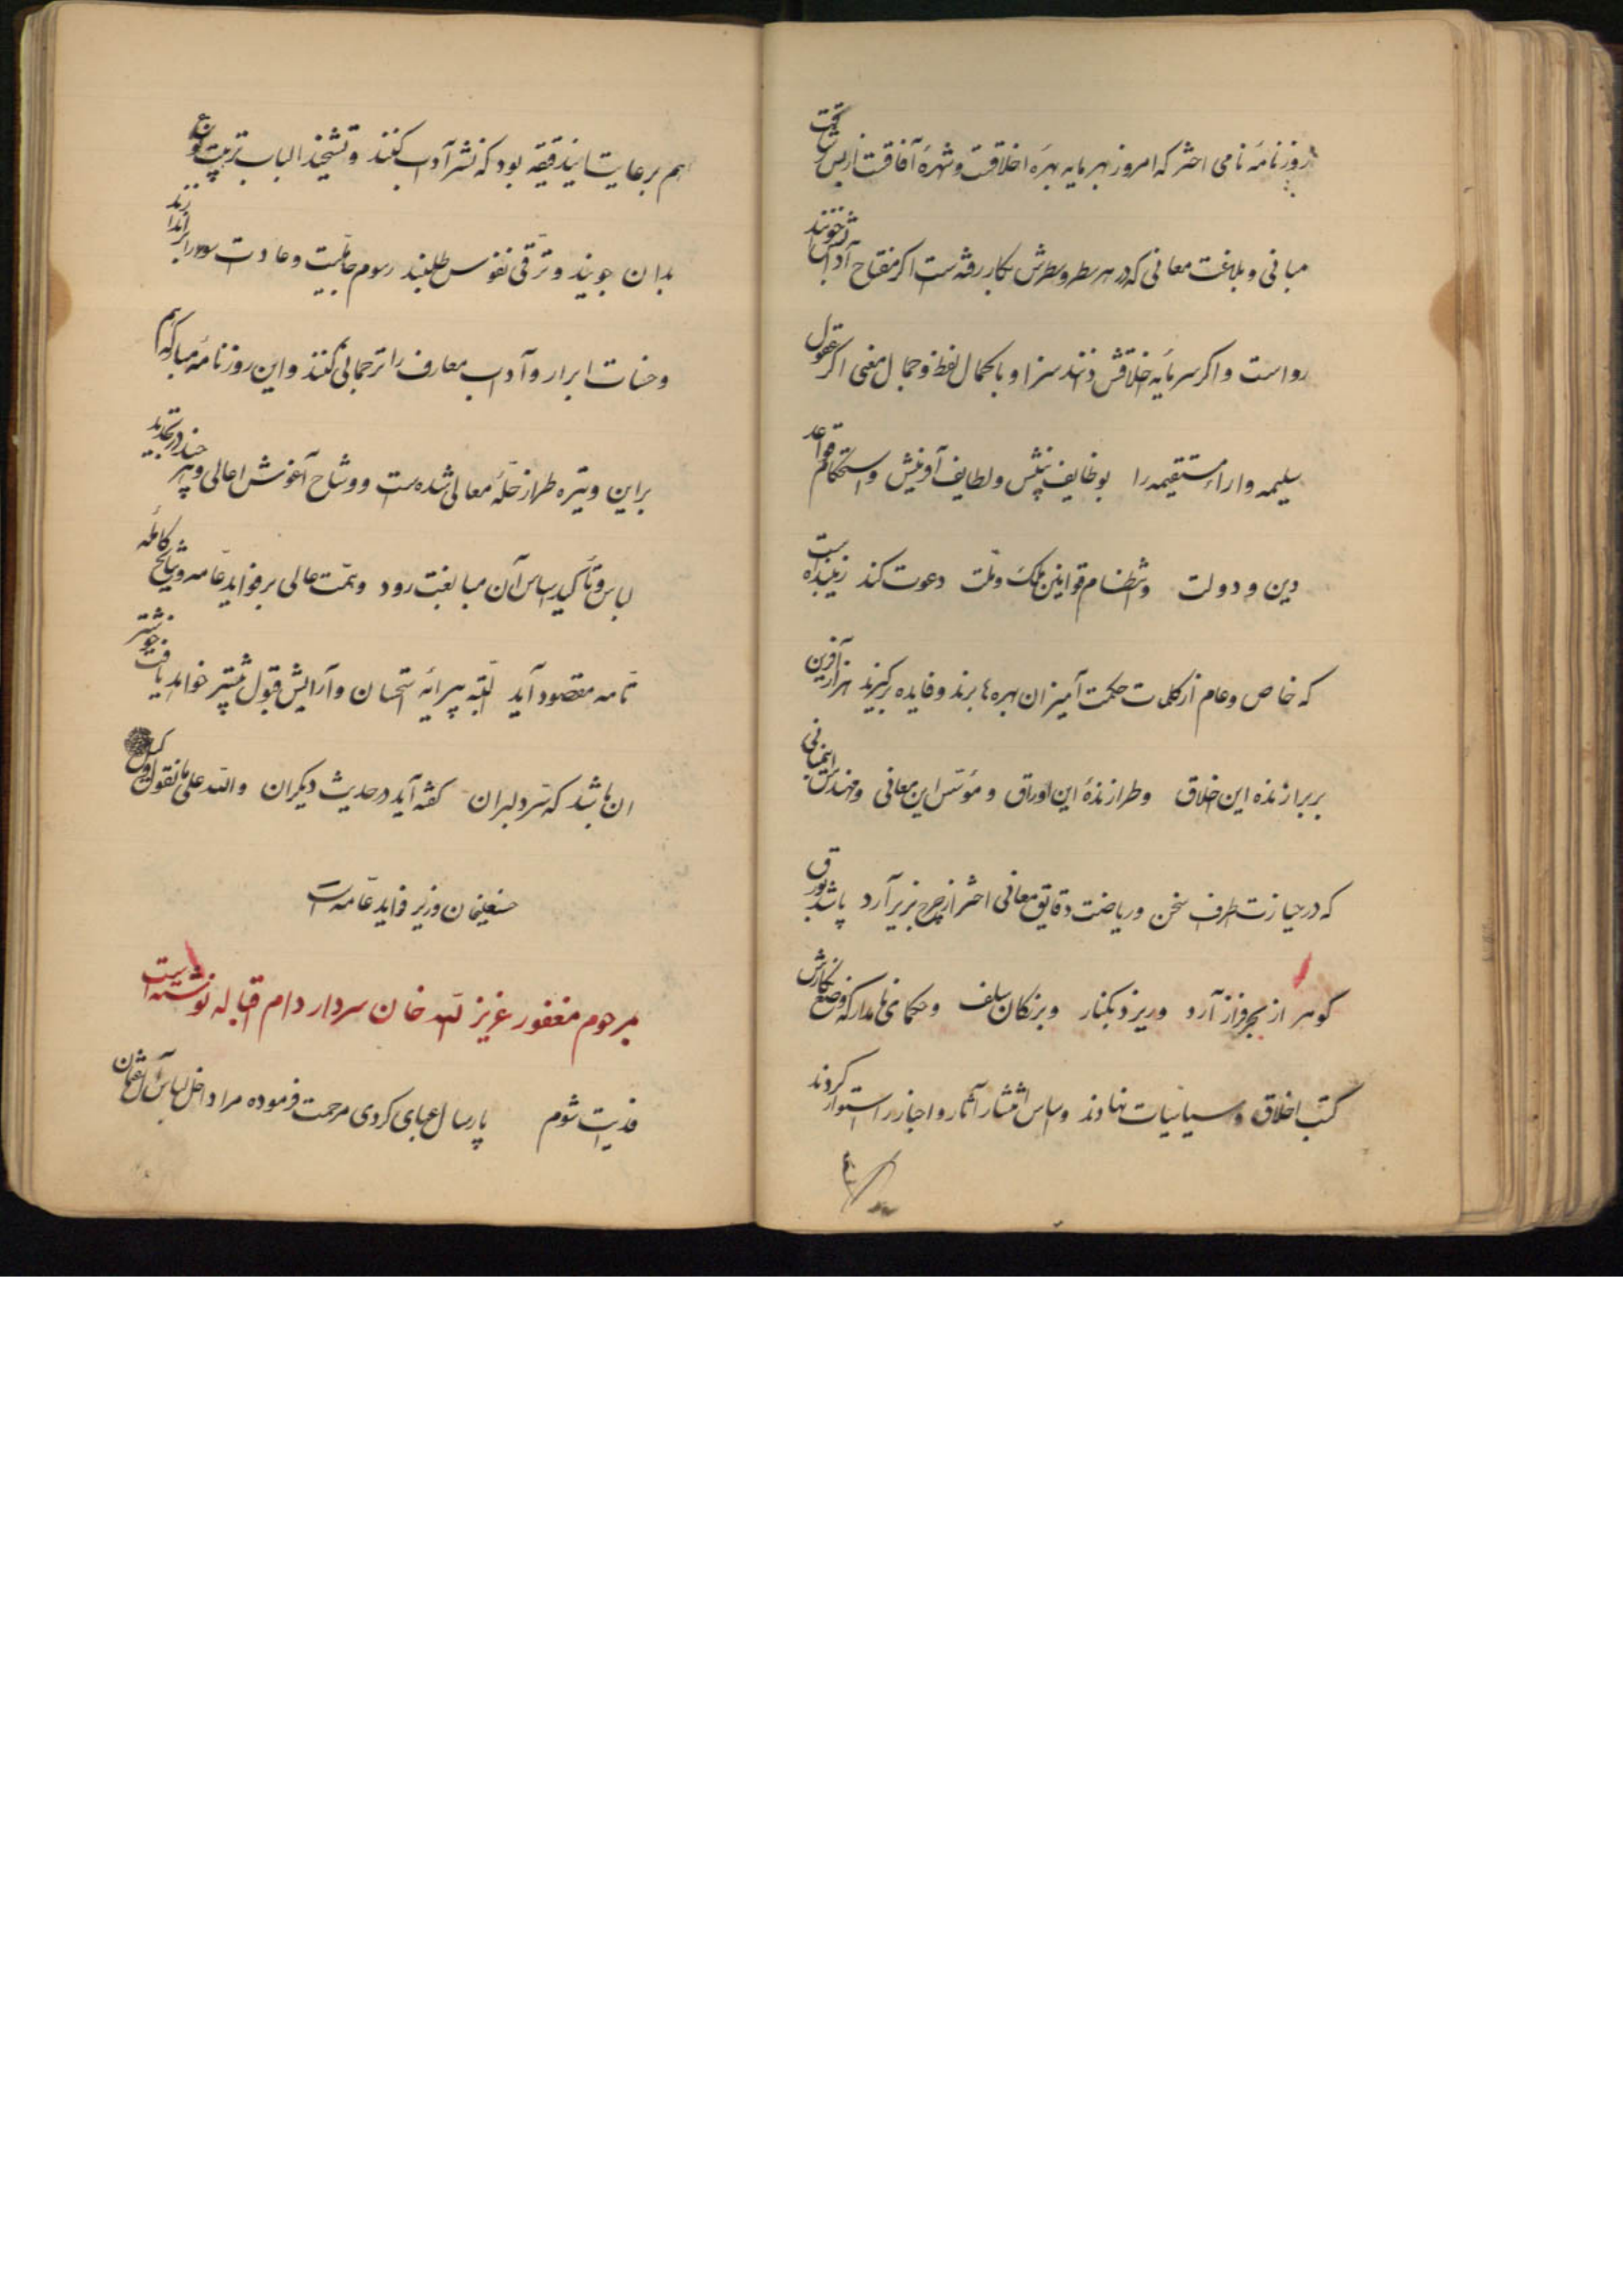 روزنامهٔ نامی اختر که امروز بهر مایه بهرهٔ اخلاقست و شهرهٔ آفاقست از بس
مبانی و بلاغت معانی که در هر سطر و سطرش بکار رفته است اگر مفتاح آدابش خوانند
رواست و اگر سرمایه اخلاقش دانند سزا و با کمال لفظ و جمال معنی اگر عقول
سلیمه و اراء مستقیمه را بوظایف بینش و لطایف آفرینش و استحکام قواعد
دین و دولت و انتظام قوانین ملک و ملت دعوت کند زیبنده است
که خاص و عام از کلمات حکمت آمیز ان بهره ها برند و فایده برگیرند هزار آفرین
بر برازنده این اخلاق و طرازندهٔ این اوراق و مؤسس این معانی و مهندس این مبانی
که در حیازت طرف سخن و ریاضت دقایق معانی اختر از چرخ بزیر آرد پاشد بورق
گوهر از بحر فراز آرد و ریزد بکنار و بزرگان سلف و حکمای نامدار که وضع نگارش
کتب اخلاق و سیاسیات نهادند و اساس انتشار آثار و اخبار را استوار کردند
هم برعایت این دقیقه بود که نشر آداب کنند و تشحیذ الباب تربیت
بدان جویند و ترقی نفوس طلبند رسوم جاهلیت و عادت سوء را براندازند
و حسنات ابرار و آداب معارف را ترجمانی کنند و این روزنامه مبارکه هم
براین وتیره طراز حلهٔ معالی شده است و وشاح آغوش اعالی و هر چند در تجدید
لباس و تأکید اساس آن مبالغت رود و همت عالی بر فواید عامه و نتایج کامله
تامه مقصود آید البته پیرایه استحسان و آرایش قبول بیشتر خواهد یافت خوشتر
ان باشد که سر دلبران گفته آید در حدیث دیگران والله علی ما نقول وکیل
حسنعلیخان وزیر فواید عامه است
مرحوم مغفور عزیز الله خان سردار دام اقباله نوشته است
فدایت شوم پارسال عبای کردی مرحمت فرموده مرا داخل لباس